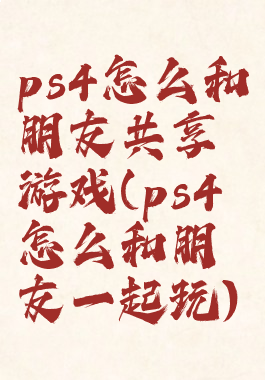 ps4怎么和
朋友共享
游戏(ps4
怎么和朋
友一起玩)